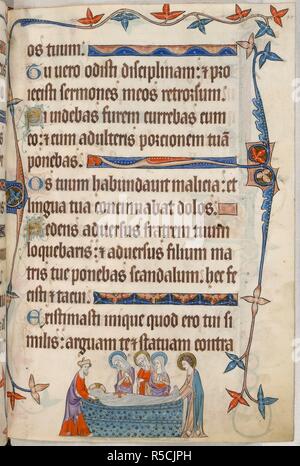 os tuum.
Tu vero odisti disciplinam: ⁊ pro
iecisti sermones meos retrorsum.
Si videbas furem currebas cum
eo: ⁊ cum adulteris porcionem tuā
ponebas.
Os tuum habundavit malicia: et
lingua tua concinabat dolos.
Sedens adversus fratrem tuum
loquebaris: ⁊ adversus filium ma
tris tue ponebas scandalum: hec fe
cisti ⁊ tacui.
Existimasti inique quod ero tui si
milis: arguam te ⁊ statuam contra
alamy
Image ID: R5CJPH
www.alamy.com